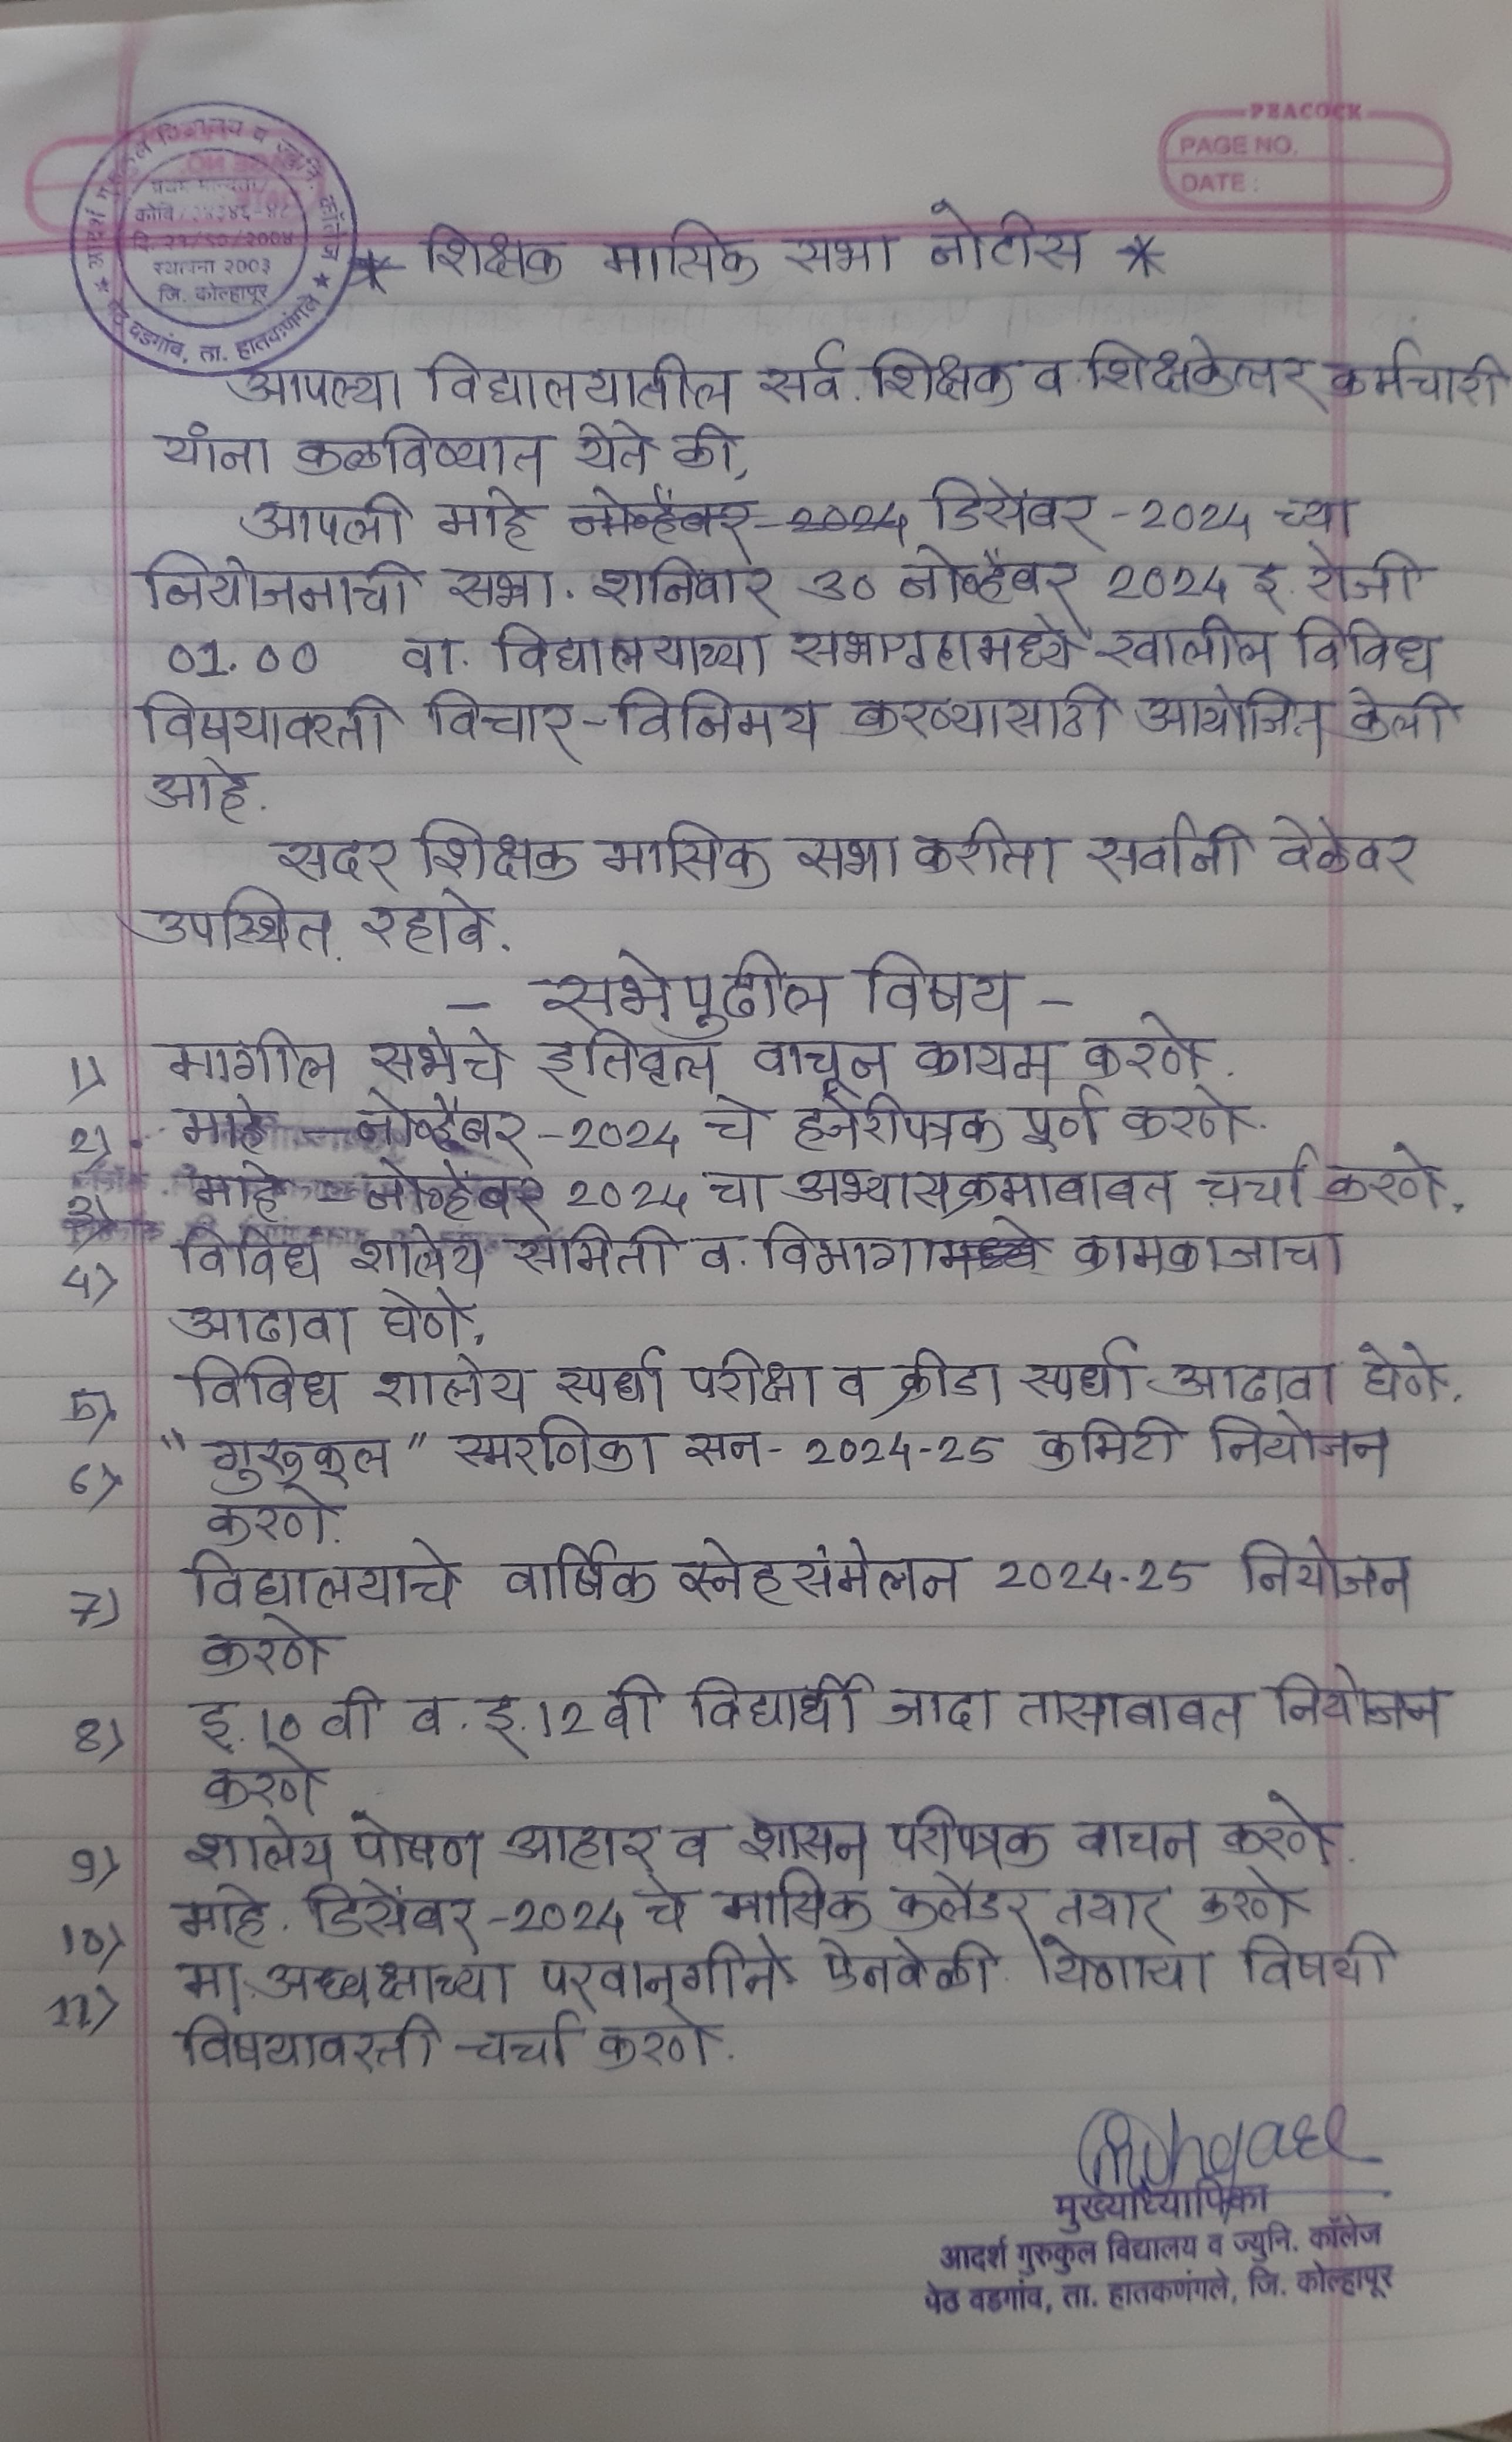 PEACOCK
PAGE NO.
DATE :
आदर्श गुरुकुल विद्यालय व ज्युनि. कॉलेज
कोवि
स्थापना 2003
जि. कोल्हापूर
पेठ वडगांव, ता. हातकणंगले
* शिक्षक मासिक सभा नोटीस *
आपल्या विद्यालयातील सर्व. शिक्षक व शिक्षकेत्तर कर्मचारी
यांना कळविण्यात येते की,
आपली माहे नोव्हेंबर-2024 डिसेंबर-2024 च्या
नियोजनाची सभा. शनिवार 30 नोव्हेंबर 2024 इ. रोजी
01.00 वा. विद्यालयाच्या सभागृहामध्ये खालील विविध
विषयावरती विचार-विनिमय करण्यासाठी आयोजित केली
आहे.
सदर शिक्षक मासिक सभा करीता सर्वानी वेळेवर
उपस्थित रहावे.
- सभेपुढील विषय -
1) मागील सभेचे इतिवृत्त वाचून कायम करणे.
2) माहे - नोव्हेंबर-2024 चे हजेरीपत्रक पूर्ण करणे.
3) माहे - नोव्हेंबर 2024 चा अभ्यासक्रमाबाबत चर्चा करणे.
4) विविध शालेय समिती व. विभागामध्ये कामकाजाचा
आढावा घेणे.
5) विविध शालेय स्पर्धा परीक्षा व क्रीडा स्पर्धा आढावा घेणे.
6) "गुरुकुल" स्मरणिका सन- 2024-25 कमिटी नियोजन
करणे.
7) विद्यालयाचे वार्षिक स्नेहसंमेलन 2024-25 नियोजन
करणे
8) इ.10 वी व. इ.12 वी विद्यार्थी जादा तासाबाबत नियोजन
करणे
9) शालेय पोषण आहार व शासन परीपत्रक वाचन करणे.
10) माहे. डिसेंबर-2024 चे मासिक कॅलेंडर तयार करणे
11) मा. अध्यक्षाच्या परवानगीने ऐनवेळी येणाऱ्या विषयी
विषयावरती चर्चा करणे.
मुख्याध्यापिका
आदर्श गुरुकुल विद्यालय व ज्युनि. कॉलेज
पेठ वडगांव, ता. हातकणंगले, जि. कोल्हापूर